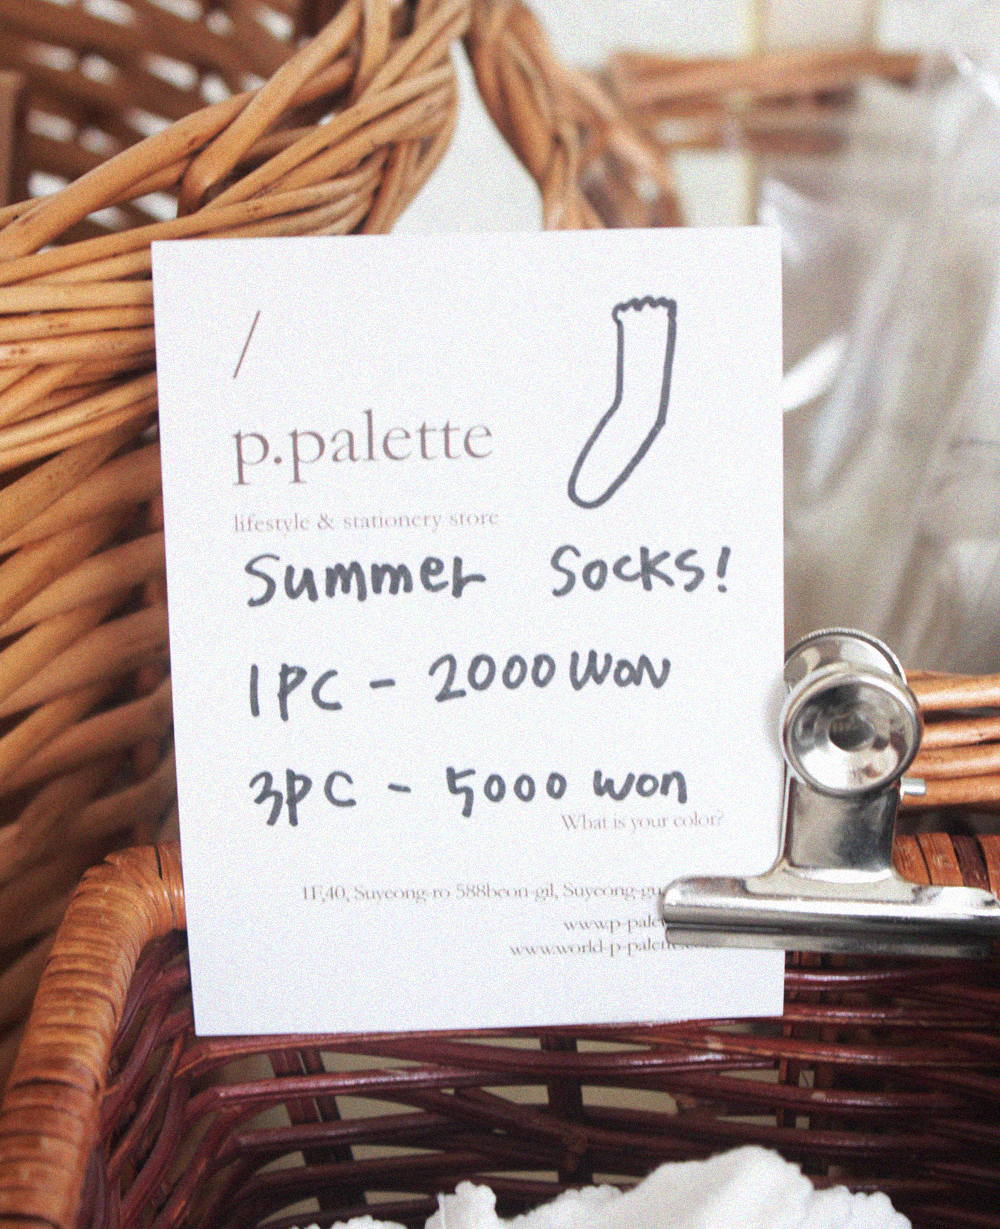 /
p.palette
lifestyle & stationery store
Summer Socks!
1PC - 2000 Won
3PC - 5000 won
What is your color?
1F,40, Suyeong-ro 588beon-gil, Suyeong-gu
www.p-pale
www.world-p-palette